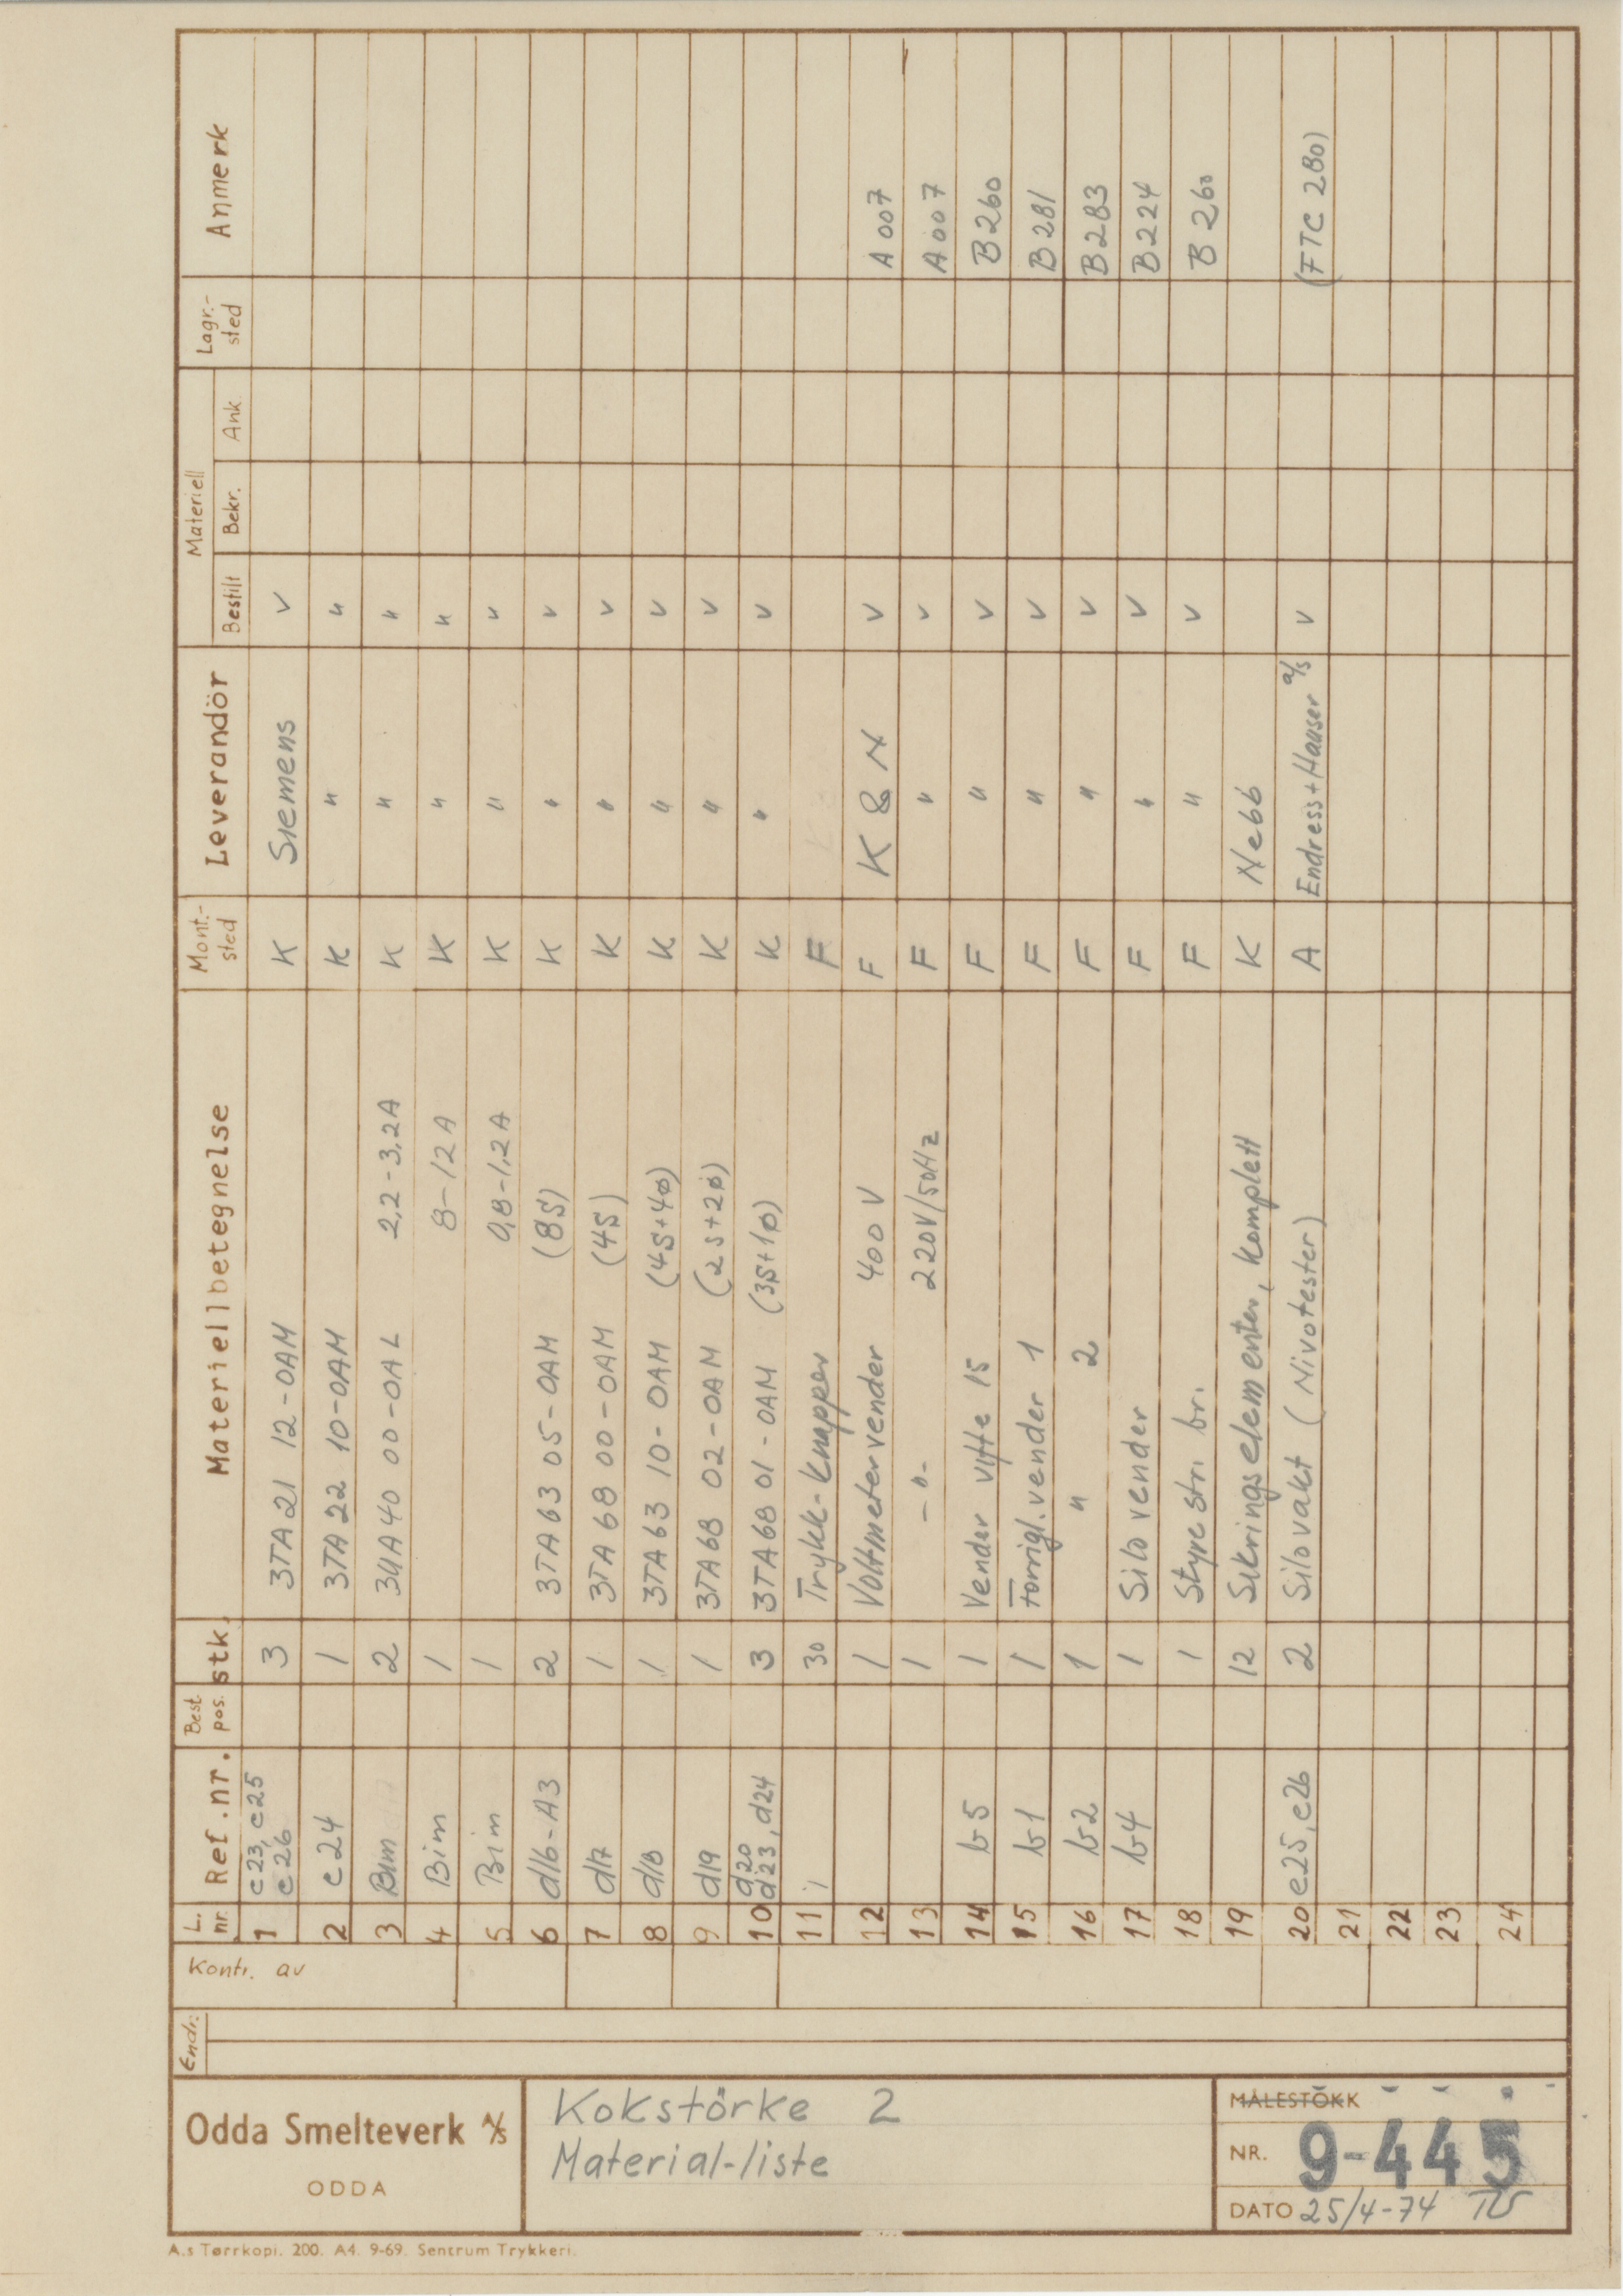 L. nr. Ref.nr. Best. pos. stk. Materiellbetegnelse Mont.-sted Leverandör Materiell Bestilt Bekr. Ank Lagr.-sted Anmerk
1 c23, c25 c26 3 3TA21 12-0AM K Siemens v
2 c24 1 3TA22 10-0AM K " "
3 Bim 2 3UA40 00-0AL 2,2-3,2A K " "
4 Bim 1 8-12A K " "
5 Bim 1 0,8-1,2A K " "
6 d16-A3 2 3TA63 05-0AM (8S) K " v
7 d17 1 3TA68 00-0AM (4S) K " v
8 d18 1 3TA63 10-0AM (4S+4ø) K " v
9 d19 1 3TA68 02-0AM (2S+2ø) K " v
10 d20 d23, d24 3 3TA68 01-0AM (3S+1ø) K " v
11 30 Trykk-knapper F
12 1 Voltmetervender 400V F K&N v A007
13 1 -"- 220V/50Hz F " v A007
14 b5 1 Vender vifte 15 F " v B260
15 b1 1 Forrigl.vender 1 F " v B281
16 b2 1 " 2 F " v B283
17 b4 1 Silo vender F " v B224
18 1 Styrestr. br. F " v B260
19 12 Sikringselementer, komplett K Nebb
20 e25, e26 2 Silovakt (Nivotester) A Endress+Hauser a/s v (FTC 280)
21
22
23
24
Kontr. av
Endr.
Odda Smelteverk A/S
ODDA
Kokstörke 2
Material-liste
MÅLESTOKK
NR. 9-445
DATO 25/4-74
A.s Tørrkopi. 200. A4. 9-69. Sentrum Trykkeri.